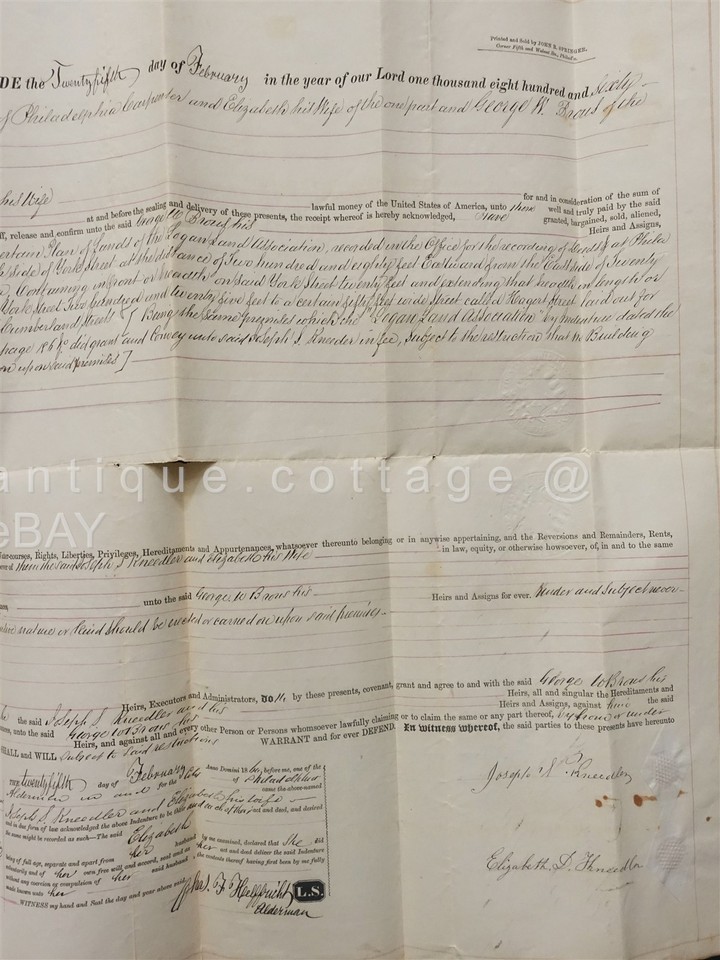 Printed and Sold by JOHN R. SPRINGER,
Corner Fifth and Walnut Sts., Philad'a.
DE the Twentyfifth day of February in the year of our Lord one thousand eight hundred and Sixty
of Philadelphia Carpenter and Elizabeth his Wife of the one part and George W. Brous of the
his Wife
for and in consideration of the sum of
lawful money of the United States of America, unto them well and truly paid by the said
at and before the sealing and delivery of these presents, the receipt whereof is hereby acknowledged, have granted, bargained, sold, aliened,
ff, release and confirm unto the said George W Brous his Heirs and Assigns,
certain Plan of Lands of the Logan Land Association, recorded in the Office for the recording of Deeds &c at Phila
side of York Street at the distance of Two hundred and eighty feet Eastward from the East side of Twenty
Containing in front or breadth on said York Street twenty feet and extending that width in length or
York Street Two hundred and twenty five feet to a certain fifty feet wide Street called Hagert Street laid out for
Cumberland Streets [Being the same premises which the "Logan Land Association" by Indenture dated the
did grant and convey unto said Joseph S Kneedler in fee, subject to the restriction that no Building
on upon said premises]
antique.cottage @
eBAY
Water-courses, Rights, Liberties, Privileges, Hereditaments and Appurtenances, whatsoever thereunto belonging or in anywise appertaining, and the Reversions and Remainders, Rents,
them the said Joseph S Kneedler and Elizabeth his Wife in law, equity, or otherwise howsoever, of, in and to the same
unto the said George W Brous his Heirs and Assigns for ever. Under and Subject never
nature or Kind should be erected or carried on upon said premises
the said Joseph S Kneedler and his Heirs, Executors and Administrators, do by these presents, covenant, grant and agree to and with the said George W Brous his
Heirs, all and singular the Hereditaments and
unto the said George W Brous his Heirs and Assigns, against him the said
Heirs, and against all and every other Person or Persons whomsoever lawfully claiming or to claim the same or any part thereof, by from or under
SHALL and WILL Subject to said restrictions WARRANT and for ever DEFEND. In Witness whereof, the said parties to these presents have hereunto
twentyfifth day of February Anno Domini 1860, before me, one of the
Alderman in and for the City of Philadelphia
the above-named
Joseph S. Kneedler and Elizabeth his wife
and in due form of law acknowledged the above Indenture to be their and each of their act and deed, and desired
the same might be recorded as such—The said Elizabeth
being of full age, separate and apart from her husband by me examined, declared that She did
voluntarily and of her own free will and accord, seal and as her act and deed deliver the said Indenture
without any coercion or compulsion of her said husband the contents thereof having first been by me fully
made known unto her
WITNESS my hand and Seal the day and year above said
L.S.
Alderman
Joseph S. Kneedler
Elizabeth D. Kneedler